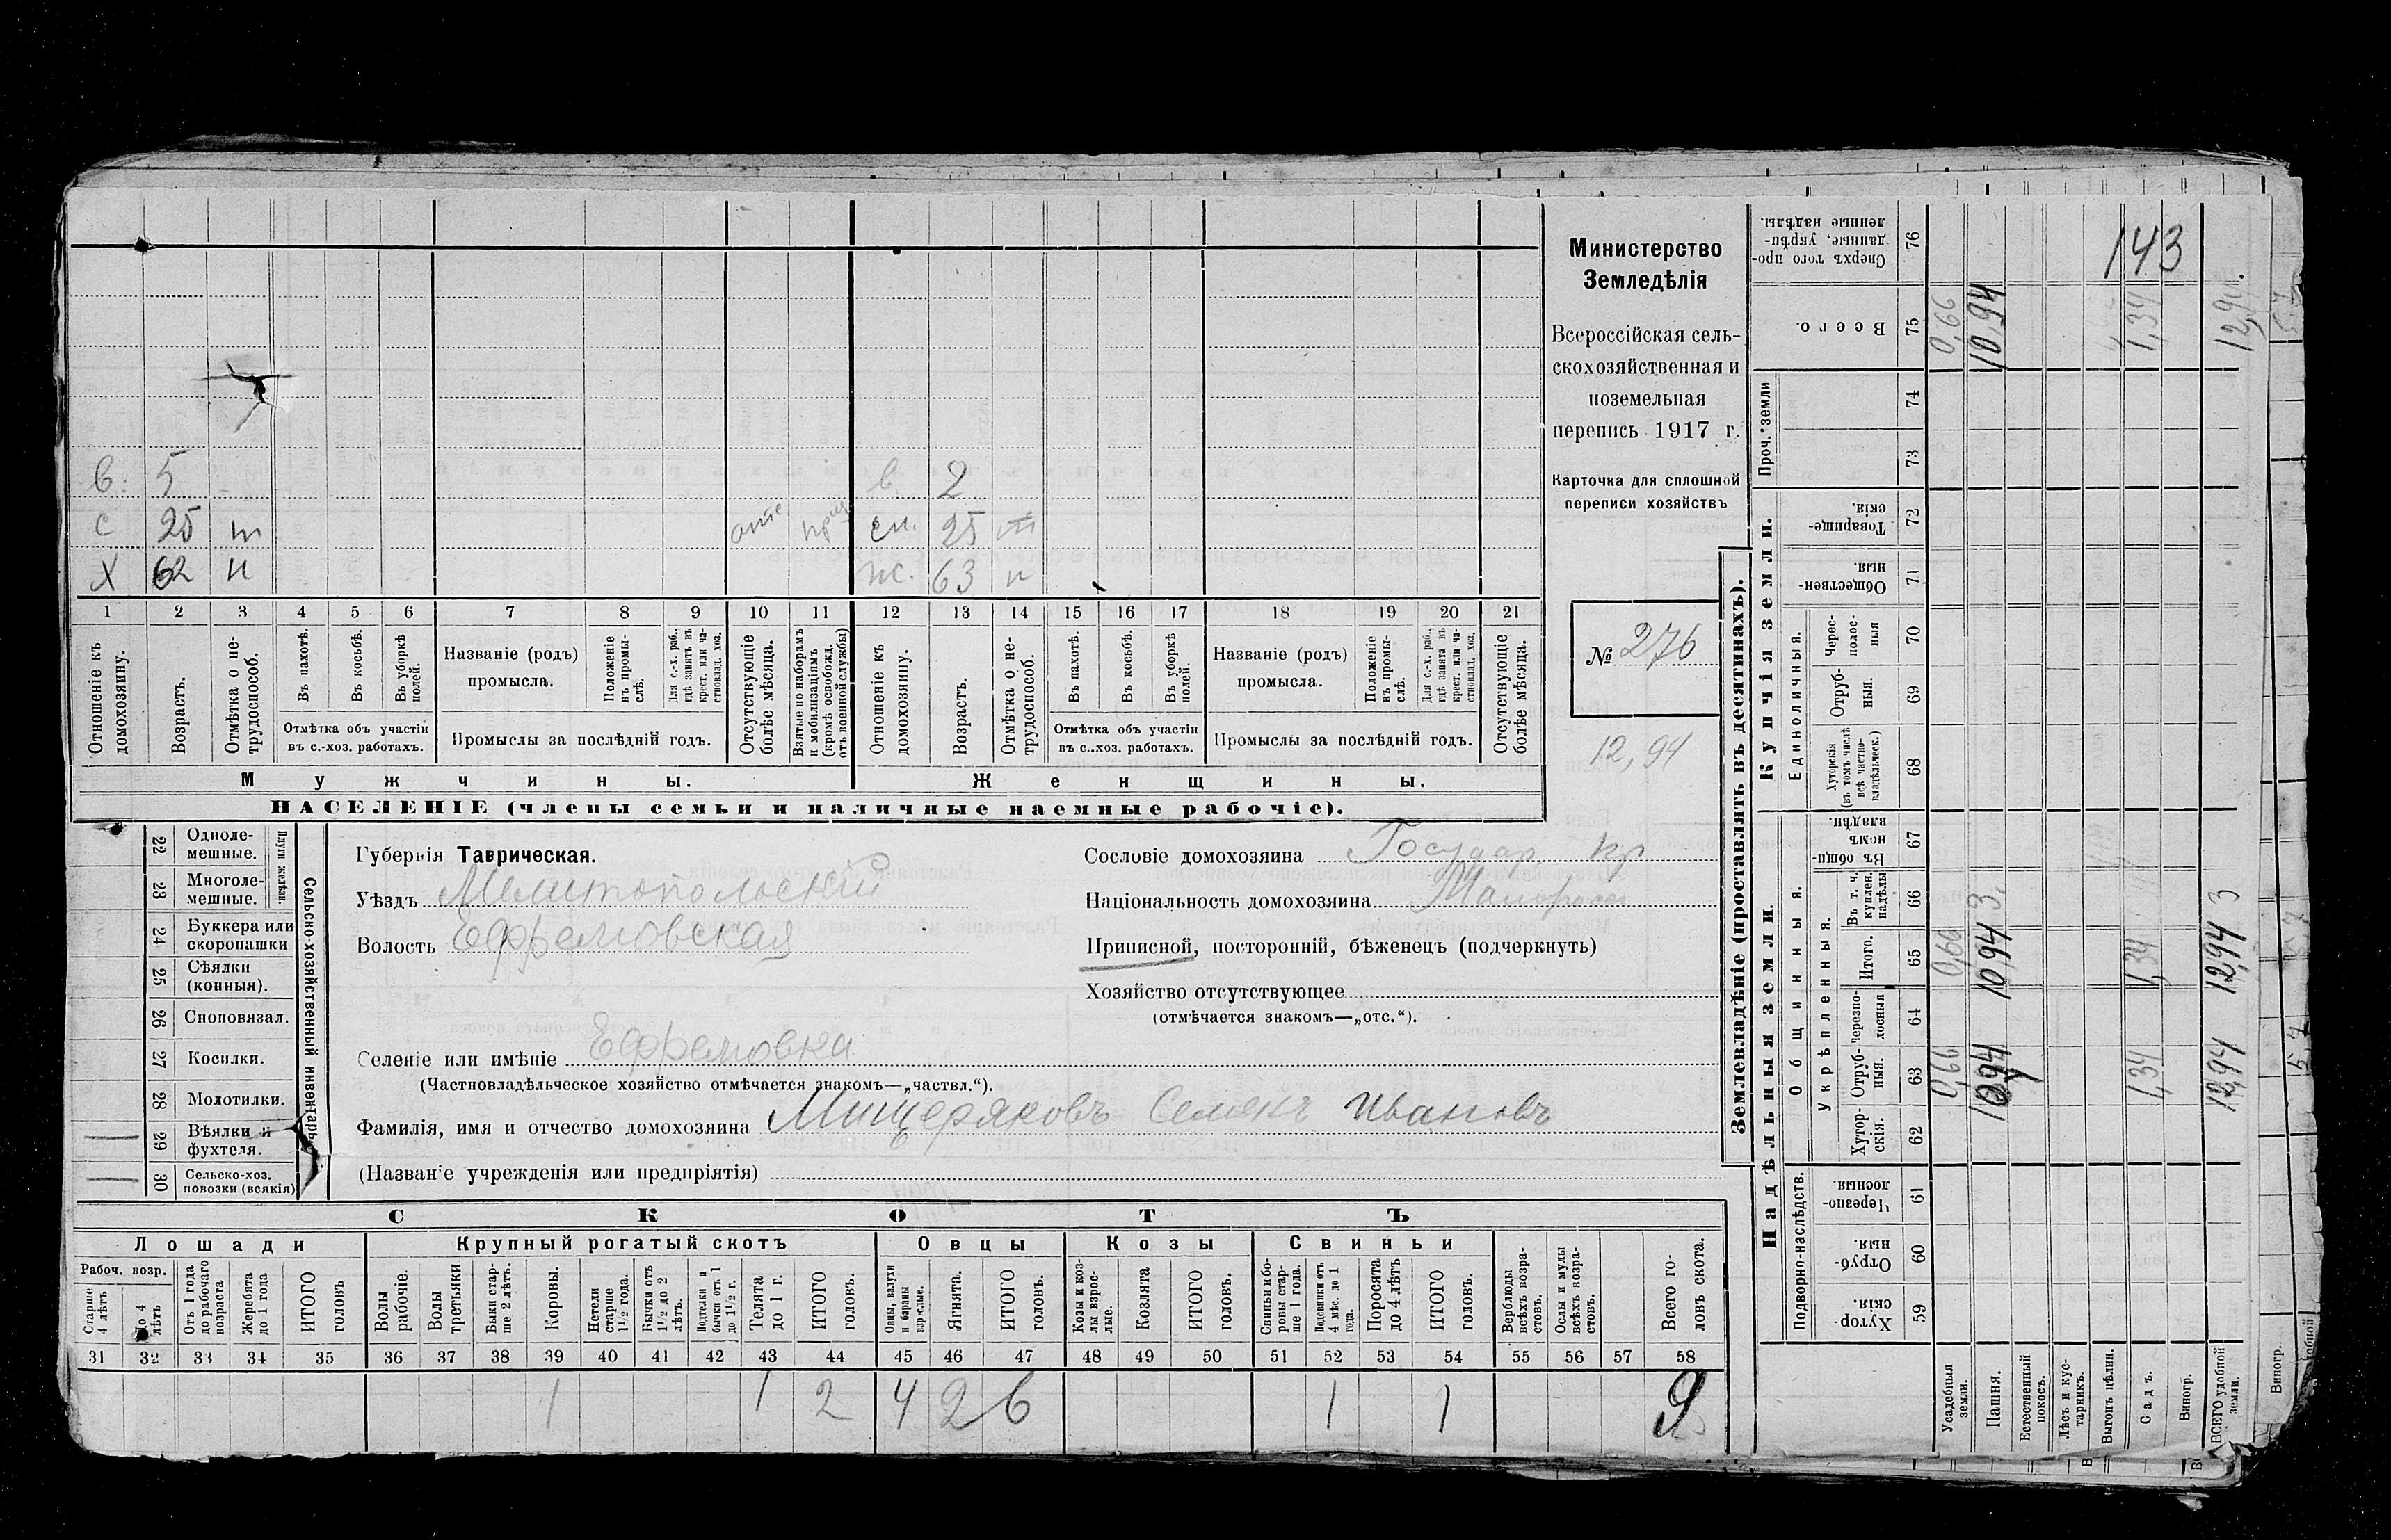 143
Министерство
Земледѣлія
Всероссійская сель-
скохозяйственная и
поземельная
перепись 1917 г.
Карточка для сплошной
переписи хозяйствъ
№ 276
12,94
в. 5 в 2
с 25 т отс сн. 25 т
Х 62 н ж. 63 н
1 2 3 4 5 6 7 8 9 10 11 12 13 14 15 16 17 18 19 20 21
Отношеніе къ домохозяину.
Возрастъ.
Отмѣтка о не-трудоспособ.
Въ пахотѣ.
Въ косьбѣ.
Въ уборкѣ полей.
Отмѣтка объ участіи
въ с.-хоз. работахъ.
Названіе (родъ)
промысла.
Положеніе въ промы-слѣ.
Для с.-х. раб., гдѣ занятъ въ крест. или ча-стновлад. хоз.
Промыслы за послѣдній годъ.
Отсутствующіе болѣе мѣсяца.
Взятые по наборамъ и мобилизаціямъ (кромѣ освобожд. отъ военной службы)
Отношеніе къ домохозяину.
Возрастъ.
Отмѣтка о не-трудоспособ.
Въ пахотѣ.
Въ косьбѣ.
Въ уборкѣ полей.
Отмѣтка объ участіи
въ с.-хоз. работахъ.
Названіе (родъ)
промысла.
Положеніе въ промы-слѣ.
Для с.-х. раб., гдѣ занята въ крест. или ча-стновлад. хоз.
Промыслы за послѣдній годъ.
Отсутствующіе болѣе мѣсяца.
Мужчины. Женщины.
НАСЕЛЕНІЕ (члены семьи и наличные наемные рабочіе).
Сельско-хозяйственный инвентарь
Плуги желѣзн.
22 Одноле-мешные.
23 Многоле-мешные.
24 Буккера или скоропашки
25 Сѣялки (конныя).
26 Сноповязал.
27 Косилки.
28 Молотилки.
29 Вѣялки и фухтеля.
30 Сельско-хоз. повозки (всякія)
Губернія Таврическая.
Уѣздъ Мелитопольскій
Волость Ефремовская
Селеніе или имѣніе Ефремовка
(Частновладѣльческое хозяйство отмѣчается знакомъ—„частвл.“).
Сословіе домохозяина Государ. кр
Національность домохозяина Малоросс
Приписной, посторонній, бѣженецъ (подчеркнуть)
Хозяйство отсутствующее
(отмѣчается знакомъ—„отс.“).
Фамилія, имя и отчество домохозяина Мищеряковъ Семенъ Ивановъ
(Названіе учрежденія или предпріятія)
СКОТЪ
Лошади Крупный рогатый скотъ Овцы Козы Свиньи
Рабоч. возр.
Старше 4 лѣтъ
До 4 лѣтъ
Отъ 1 года до рабочаго возраста
Жеребята до 1 года
ИТОГО головъ
Волы рабочіе.
Волы третьяки.
Быки стар-ше 2 лѣтъ.
Коровы.
Нетели старше 1½ года.
Бычки отъ 1½ до 2 лѣтъ.
Подтелки и бычки отъ 1 до 1½ г.
Телята до 1 г.
ИТОГО головъ.
Овцы, валухи и бараны взрослые.
Ягнята.
ИТОГО головъ.
Козы и коз-лы взрос-лые.
Козлята
ИТОГО головъ.
Свиньи и бо-ровы стар-ше 1 года.
Подсвинки отъ 4 мѣс. до 1 года.
Поросята до 4 лѣтъ
ИТОГО головъ.
Верблюды всѣхъ возра-стовъ.
Ослы и мулы всѣхъ возра-стовъ.
Всего го-ловъ скота.
31 32 33 34 35 36 37 38 39 40 41 42 43 44 45 46 47 48 49 50 51 52 53 54 55 56 57 58
1 1 2 4 2 6 1 1 9
Землевладѣніе (проставлять въ десятинахъ).
Надѣльныя земли.
Купчія земли.
Проч. земли
Подворно-наслѣдств.
Общинныя.
Укрѣпленныя.
Единоличныя.
Хутор-скія. 59
Отруб-ныя. 60
Черезпо-лосныя 61
Хутор-скія. 62
Отруб-ныя. 63
Черезпо-лосныя 64
Итого. 65
Въ т. ч. куплен. надѣлы 66
Въ общи-номъ владѣн. 67
Хуторскія (въ томъ числѣ всѣ частно-владѣльческ.) 68
Отруб-ныя. 69
Черес-полос-ныя 70
Обществен-ныя 71
Товарище-скія. 72
73
74
Всего. 75
Сверхъ того про-данные, укрѣп-ленные надѣлы. 76
Усадебныя земли. 0,66 0,66 0,66
Пашня. 10,94 10,94 3 10,94
Естественный покосъ.
Лѣсъ и кус-тарникъ.
Выгонъ цѣлин.
Садъ. 1,34 1,34 1,34
Виногр.
ВСЕГО удобной земли. 12,94 12,94 3 12,94
Виногр.